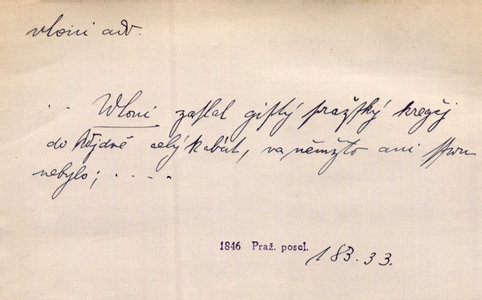 vloni adv.
. . Wloni zaslal gistý pražský kregčj
do Wjdně celý kabát, na němžto ani šwu
nebylo; . . . .
1846 Praž. posel. 183.33.